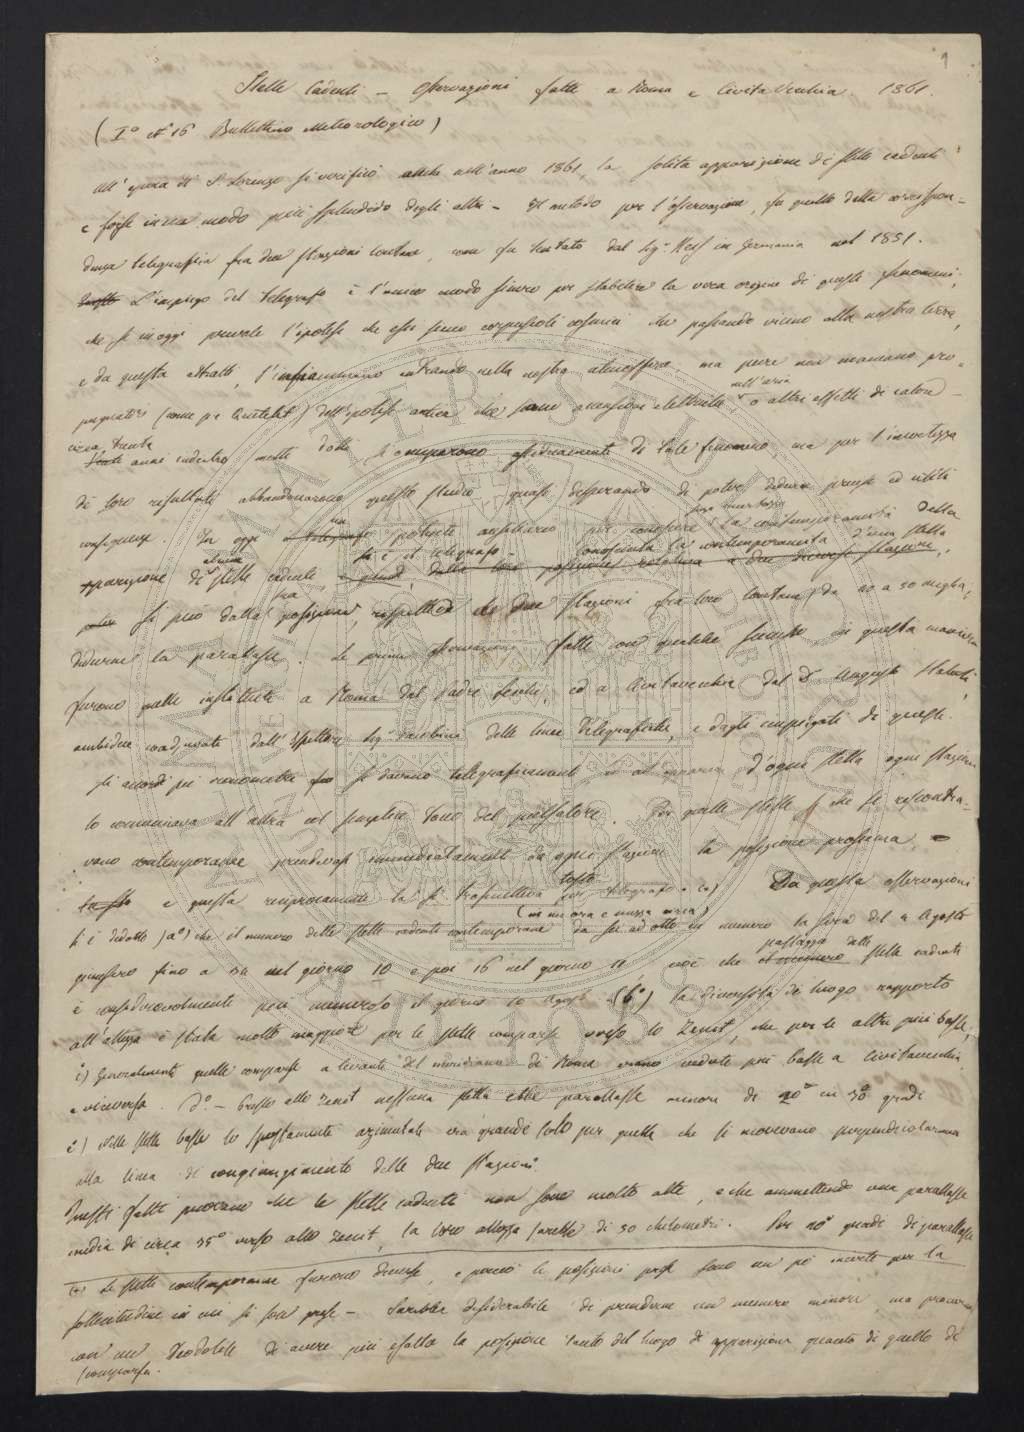 1
Stelle Cadenti – Osservazioni fatte a Roma e Civita Vecchia 1861.
(I° N° 16 Bullettino Meteorologico)
All' epoca di S. Lorenzo si verificò anche nell'anno 1861, la solita apparizione di stelle cadenti
e forse in un modo più splendido degli altri – Il metodo per l'osservazione, fu quello della corrispon=
denza telegrafica fra due stazioni lontane, come fu tentato dal Sig.r in Germania nel 1851.
L'impiego del telegrafo è l'unico modo sicuro per stabilire la vera origine di questi fenomeni;
che se in oggi prevale l'ipotesi che essi siano corpuscoli cosmici che passando vicino alla nostra terra,
e da questa attratti, s'infiammino entrando nella nostra atmosfera, ma pure non mancano pro=
pugnatori (come p.e. Quetelet) dell'ipotesi antica che sono accensioni elettriche nell'aria o altri effetti di calore –
circa trenta anni indietro molti dotti si occuparono assiduamente di tale fenomeno, ma per l'incertezza
di loro risultati abbandonarono questo studio quasi disperando di poter dedurne precise ed utili
conseguenze. In oggi un potente ausiliario per conoscere la contemporaneità della
apparizione di alcune stelle cadenti, si è il telegrafo – Conosciuta la contemporaneità d'una stella
si può dalla sua posizione, rispettiva alle due stazioni fra loro lontane da 40 a 50 miglia,
dedurne la parallasse. Le prime osservazioni fatte con qualche successo in questa maniera
furono quelle instituite a Roma dal Padre Secchi, ed a Civitavecchia dal D.r Augusto Statuti,
ambidue coadjuvati dall' Ispettore Sig.r Jacobini delle linee Telegrafiche, e dagli impiegati di queste.
Si accordò pei cronometri si davano telegraficamente ed d'ogni stella ogni stazione
lo comunicava all'altra col semplice tono del pulsatore. Per quelle stelle che si riscontra=
vano contemporanee prendevasi immediatamente da ogni stazione la posizione prossima,
e questa reciprocamente la si trasmetteva tosto per telegrafo Da questa osservazioni
si è dedotto (a°) che il numero delle stelle cadenti contemporanee (in un ora e mezza circa) da sei ad otto in numero la sera del 9 Agosto
giunsero fino a 32 nel giorno 10 e poi 16 nel giorno 11 cioè che il passaggio delle stelle cadenti
è considerevolmente più numeroso il giorno 10 Agosto. (b°) la diversità di luogo rapporto
all'altezza è stata molto maggiore per le stelle comparse verso lo Zenit, che per le altre più basse;
c°) generalmente quelle comparse a levante del meridiano di Roma erano vedute più basse a Civitavecchia
e viceversa. D°. – Presso allo zenit nessuna stella ebbe parallasse minore di 20° in 30° gradi
e°) Nelle stelle basse lo spostamento azimutale era grande solo per quelle che si movevano perpendicolarmente
alla linea di congiungimento delle due stazioni.
Questi fatti provano che le stelle cadenti non sono molto alte, e che ammettendo una parallasse
media di circa 35° verso allo zenit, la loro altezza sarebbe di 50 chilometri. Per 20° gradi di parallasse
(*) Le stelle contemporanee furono diverse, e perciò le posizioni prese sono un pò incerte per la
sollecitudine in cui si son prese – Sarebbe desiderabile di prenderne un numero minore, ma procurare
con un Teodolite di avere più esatta la posizione tanto del luogo di apparizione quanto di quello di
scomparsa.